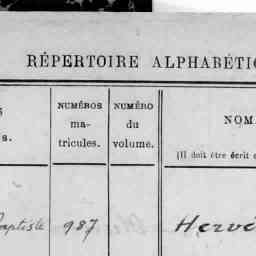 RÉPERTOIRE ALPHABÉTI
NUMÉROS
ma-
tricules.
NUMÉRO
du
volume.
NOM
(Il doit être écrit
s.
aptiste 987 Hervé